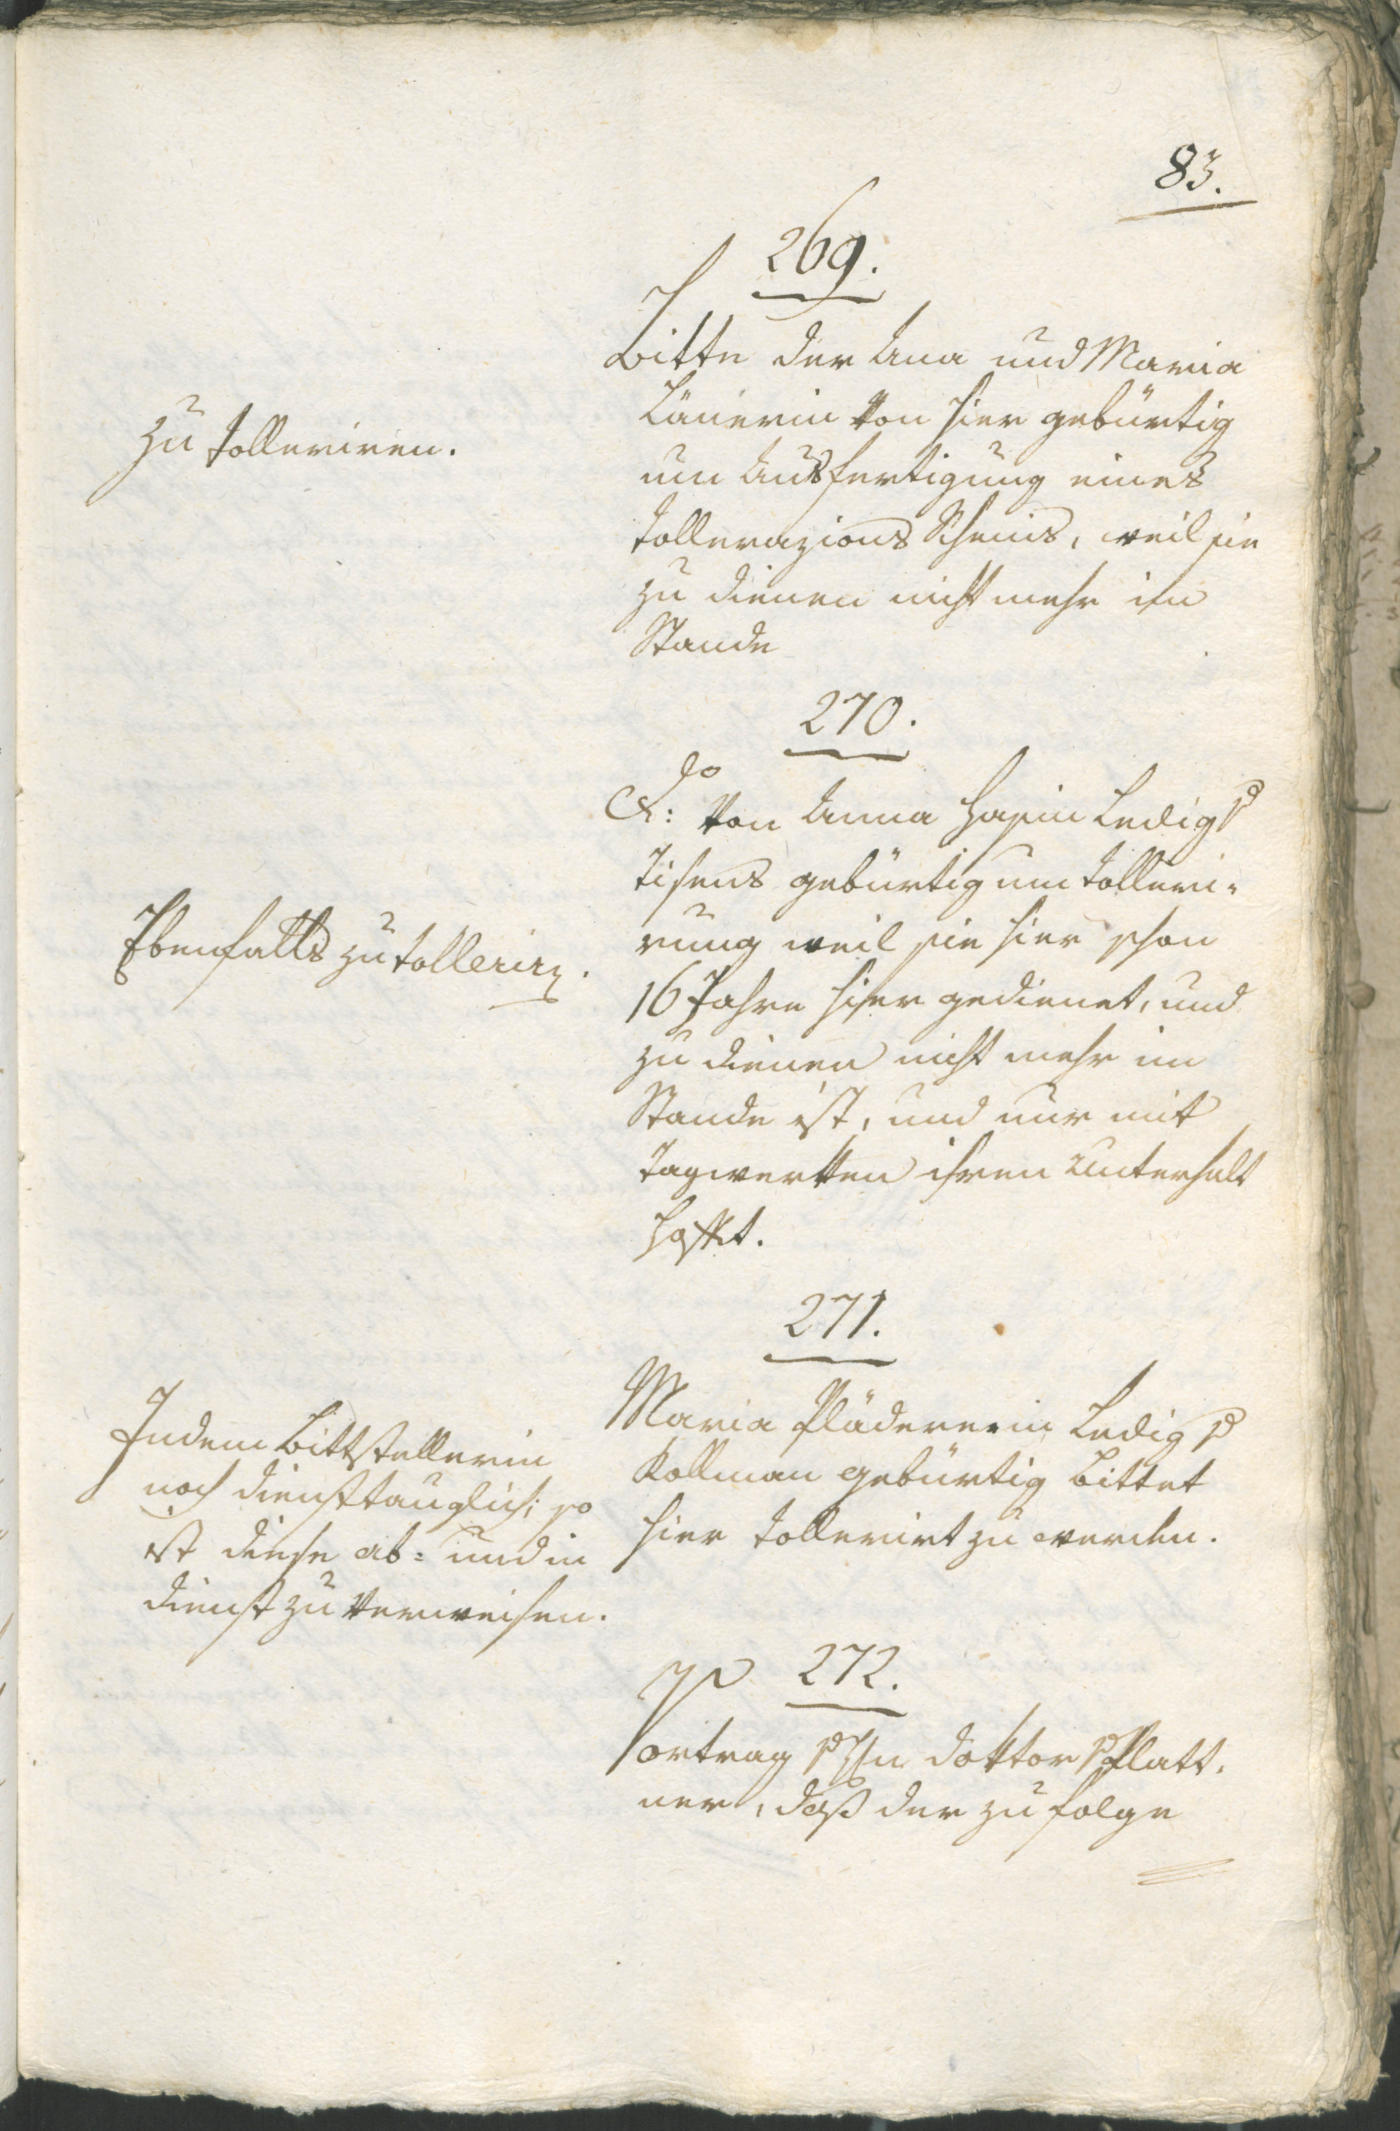 83.
269.
Bitte der Ana und Maria
von hier gebürtig
um Ausfertigung eines
Tollerazions Scheins, weil sie
zu dienen nicht mehr im
Stande
zu tolleriren.
270.
von Anna Ledig
Tisens gebürtig um Tolleri-
rung weil sie hier schon
16 Jahre hier gedienet, und
zu dienen nicht mehr im
Stande ist, und nur mit
Tagwerken ihren Unterhalt
Ebenfalls zu tollerirn.
271.
Maria Plädererin Ledig
Kollman gebürtig bittet
hier tollerirt zu werden.
Indem Bittstellerin
noch diensttauglich; so
ist diese ab- und in
dienst zu verweisen.
272.
Vortrag Hn Doktor Platt-
ner, daß der zu folge